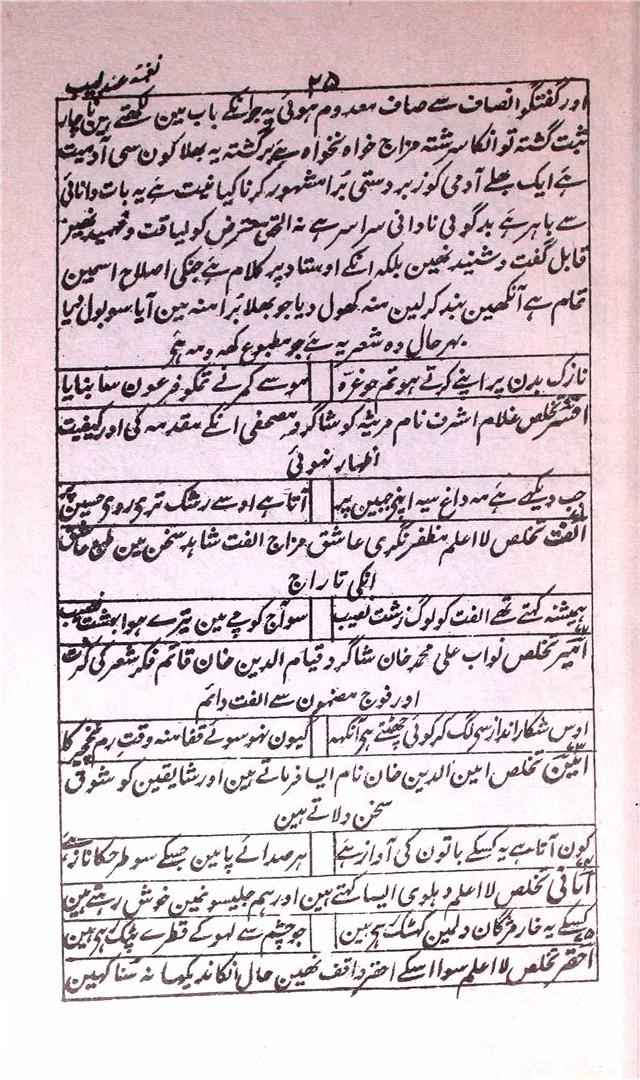 نغمۂ عندلیب
۲۵
اور گفتگو انصاف سے صاف معدوم ہوئی یہ جو انکے باب مین لکھتے ہین ناچار
ثبت گشتہ تو انکا سر رشتہ مزاج خواہ نخواہ ہے برگشتہ یہ بھلا کون سی آدمیت
ہے ایک بھلے آدمی کو زبردستی بُرا مشہور کرنا کیا نیت ہے یہ بات دانائی
سے باہر ہے بدگوئی نادانی سراسر ہے نہ التقی معترض کو لیاقت و فہمید نہین
قابل گفت و شنید نہین بلکہ انکے اوستاد پر کلام ہے جنکی اصلاح اسمین
تمام ہے آنکھین بند کرلین منہ کھول دیا جو بھلا بُرا منہ مین آیا سو بول دیا
بہر حال وہ شعر یہ ہے جو مطبوع کہہ و مہ ہی
نازک بدن پر اپنے کرتے ہو تم جو غرّہ موسے کمر نے تمکو فرعون سا بنایا
افسر تخلص غلام اشرف نام مرثیہ گو شاگرد مصحفی انکے مقدمہ کی اور کیفیت
اظہار نہوئی
جب دیکھے ہے مہ داغ سیہ اپنی جبین پر آتا ہے اوسے رشک تری روی حسین پر
الفت تخلص لا اعلم مظفر نگری عاشق مزاج الفت شاہد سخن مین طبع عاشق
انکی تاراج
ہمیشہ کہتے تھے الفت کو لوگ زشت نصیب سو آج کوچے مین تیرے ہوا بہشت نصیب
امیر تخلص نواب علی محمد خان شاگرد قیام الدین خان قائم فکر شعر کی کثرت
اور فوج مضمون سے الفت دائم
اوس شکار انداز سی لگ کر کوئی چھٹتے ہی آنکہہ کیون نہو سوئے قفا منہ وقت رم نخچیر کا
امین تخلص امین الدین خان نام ایسا فرماتے ہین اور شایقین کو شوق
سخن دلاتے ہین
کون آتا ہے یہ کسکے باتون کی آواز ہے ہر صدائے پا مین جسکے سو طرحکا ناز ہے
امانی تخلص لا اعلم دہلوی ایسا کہتے ہین اور ہم جلیسونمین خوش رہتے ہین
کسکے یہ خار مژگان دلمین کھٹک رہی ہین جو چشم سے لہو کے قطرے ٹپک رہی ہین
احقر تخلص لا اعلم سوا اسکے احقر واقف نہین حال انکا ندیکہا نہ سُنا کہین